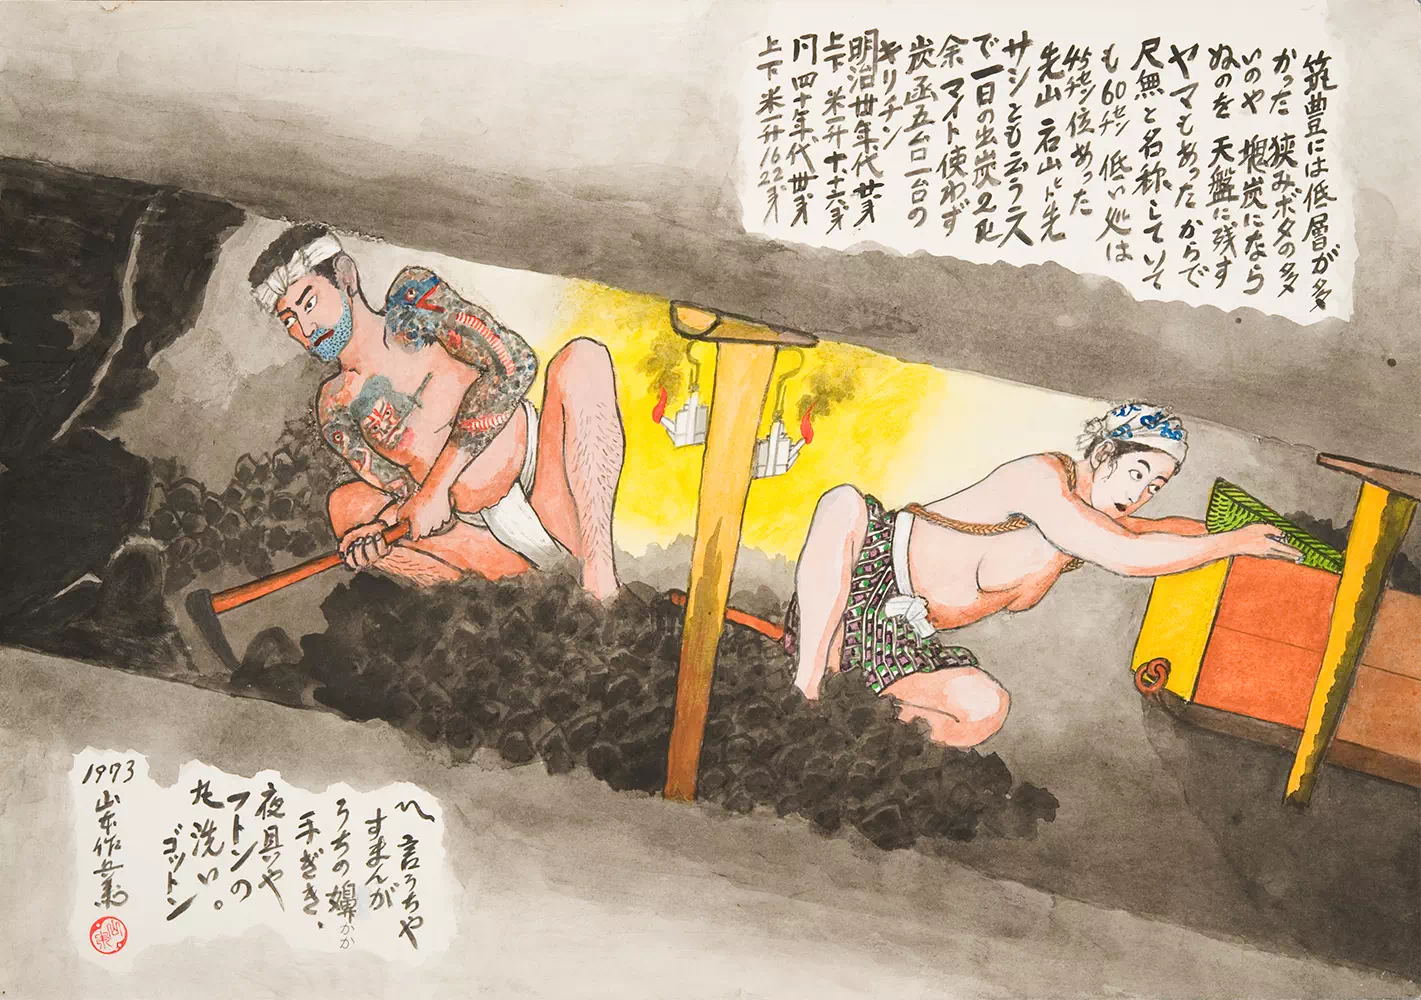 筑豊には低層が多
かった 狭みボタの多
いのや 塊炭になら
ぬのを 天盤に残す
ヤマもあったからで
尺無と名称していて
も60センチ 低い処は
45センチ位あった
先山 石山ト先
サシとも云う二人
で一日の出炭2屯
余 マイト使わず
炭函五台一台の
キリチン
明治卅年代 廿才
上下 米一升十、十六才
円 四十年代 卅才
上下 米一升16 22才
〽 言うちや
すまんが
うちの嬶かか
手ぎき、
夜具や
フトンの
丸洗い。
ゴットン
1973 山本作兵衛